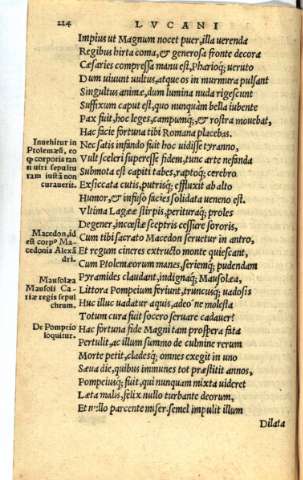 224 LVCANI
Impius ut Magnum nosset puer, illa verenda
Regibus hirta coma, & generosa fronte decora
Cæsaries compressa manu est, Pharioq; veruto
Dum vivunt vultus, atque os in murmura pulsant
Singultus animæ, dum lumina nuda rigescunt
Suffixum caput est, quo nunquàm bella iubente
Pax fuit, hoc leges, campumq́;, & rostra movebat,
Hac facie fortuna tibi Romana placebas.
Nec satis infando fuit hoc vidisse tyranno,
Vult sceleri superesse fidem, tunc arte nefanda
Submota est capiti tabes, raptoq; cerebro
Exsiccata cutis, putrisq; effluxit ab alto
Humor, & infuso facies solidata veneno est.
Vltima Lageæ stirpis, perituraq; proles
Degener, incestæ sceptris cessure sororis,
Cum tibi sacrato Macedon servetur in antro,
Et regum cineres extructo monte quiescant,
Cum Ptolemæorum manes, seriemq; pudendam
Pyramides claudant, indignaq; Mausolæa,
Littora Pompeium feriunt, truncusq; vadosis
Huc illuc iactatur aquis, adeò ne molesta
Totum cura fuit socero servare cadaver?
Hac fortuna fide Magni tam prospera fata
Pertulit, ac illum summo de culmine rerum
Morte petit, cladesq; omnes exegit in uno
Sæva die, quibus immunes tot præstitit annos,
Pompeiusq; fuit, qui nunquam mixta videret
Læta malis, felix nullo turbante deorum,
Et nullo parcente miser: semel impulit illum
Dilata
Invehitur in
Ptolemæũ,
ea corporis
sepultu
Macedon, id
est corpꝰ Ma
cedonis Alexã
dri.
Mausolæa
Mausoli Ca
riæ regis sepul
chrum.
De Pompeio
loquitur.